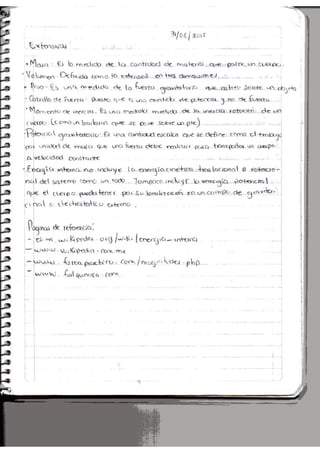 31/05/2015
Extensivas
• Masa: Es la medida de la cantidad de materia que posee un cuerpo.
- Volumen: Definida como la extensión en tres dimensiones
• Peso: Es una medida de la fuerza gravitatoria que actúa sobre un objeto
- Caballo de fuerza: Puesto que es una medida de potencia y no de fuerza
- Momento de inercia: Es una medida de la inercia rotacional de un
cuerpo (como
que se pone sobre un pie)
- Potencial gravitatorio: Es una cantidad escalar que se define como el trabajo
por unidad de masa que una fuerza debe realizar para transportar un cuerpo
a velocidad constante
- Energía interna: no incluye la energía cinética traslacional o rotacio-
nal del sistema como un todo. Tampoco incluye la energía potencial
que el cuerpo pueda tener por su localización en un campo de gravita-
cional o electrostático externo.
Páginas de referencia:
- es.m.wikipedia.org/wiki/energía_interna
- www.wikipedia.com.mx
- www.fisicapractica.com/magnitudes.php
- www.fullquimica.com